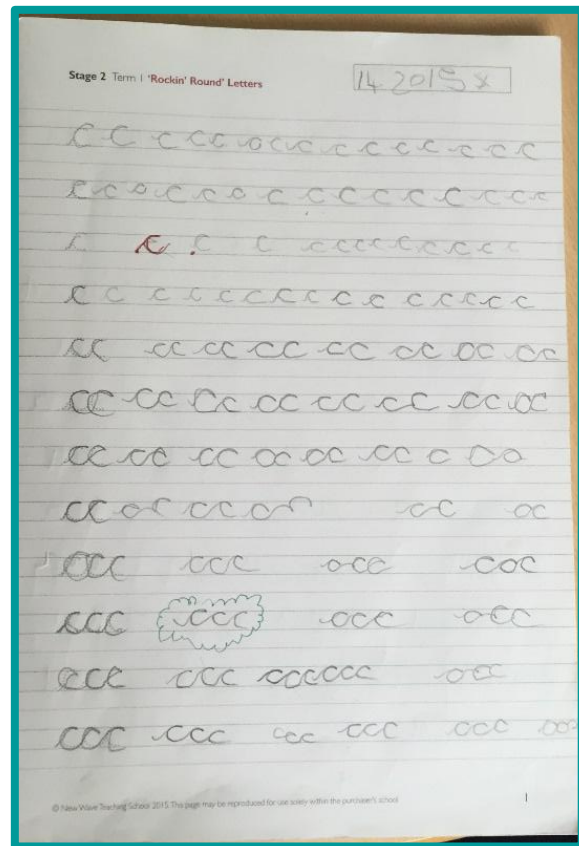 Stage 2 Term 1 'Rockin' Round' Letters
14 2015 x
c c c c c o c c c c c c c c c
c c o c c o c c c c c c c c c
c c c c c c c c c c c c c
c c c c c c c c c c c c c c c
cc cc cc cc cc cc oc cc
cc cc cc cc cc cc cc oc
cc cc cc oc oc cc c oo
cc oc cc cc oc
occ ccc occ coc
ccc ccc occ occ
ece ccc cccccc occ
coc ccc ccc ccc ccc
© New Wave Teaching School 2015. This page may be reproduced for use solely within the purchaser's school.
1